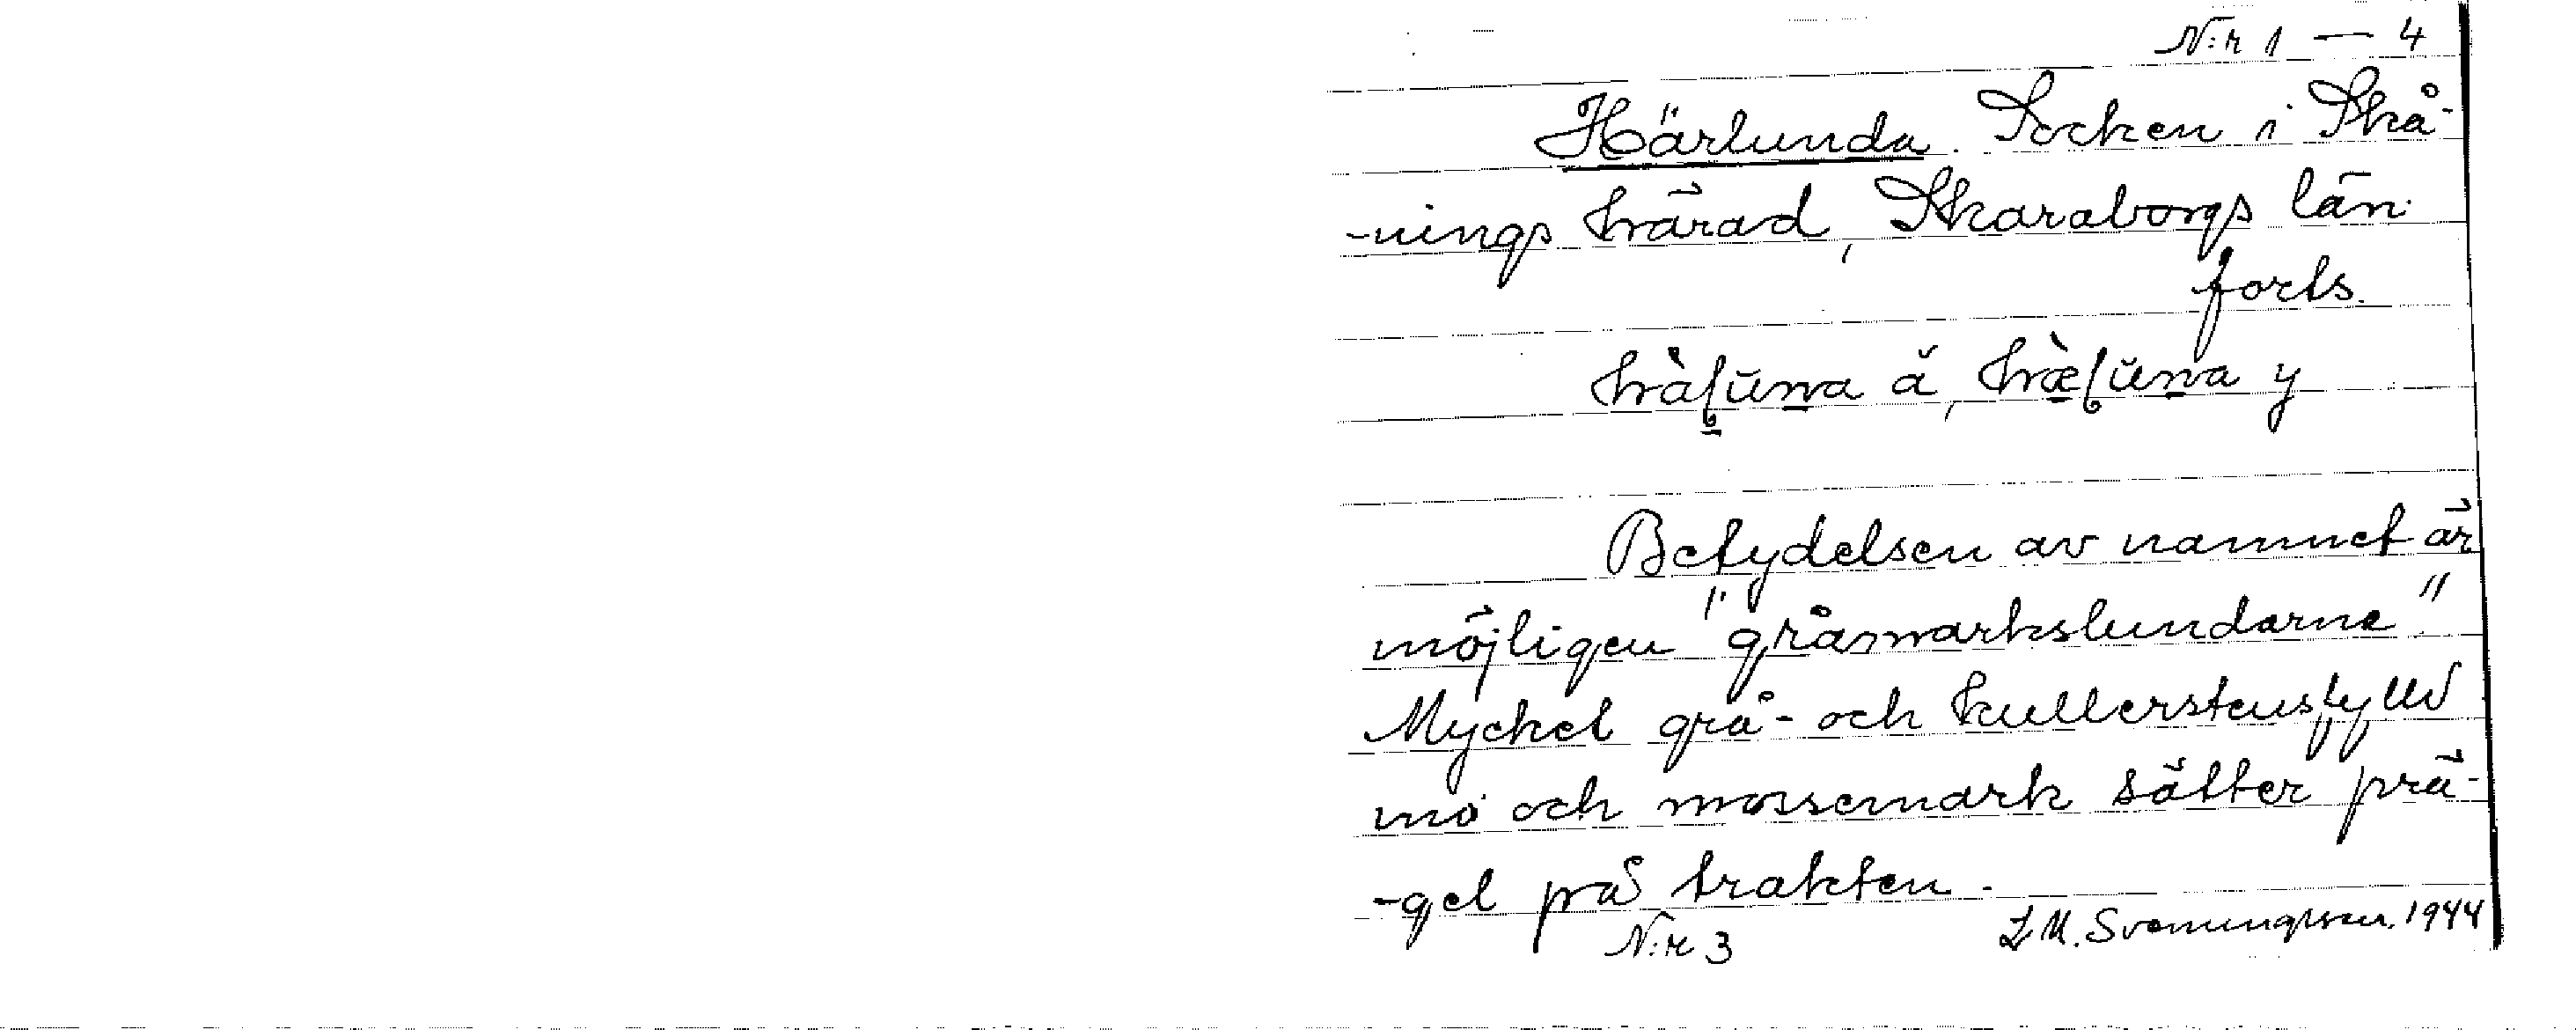 N:r 1 — 4
Härlunda. Socken i Skå-
-nings härad, Skaraborgs län
forts.
Betydelsen av namnet är
möjligen "gråmarkslundarna"
Mycket grå- och kullerstensfylld
mo och mossemark sätter prä-
-gel på trakten.
N:r 3 L M. Svenungsson. 1944